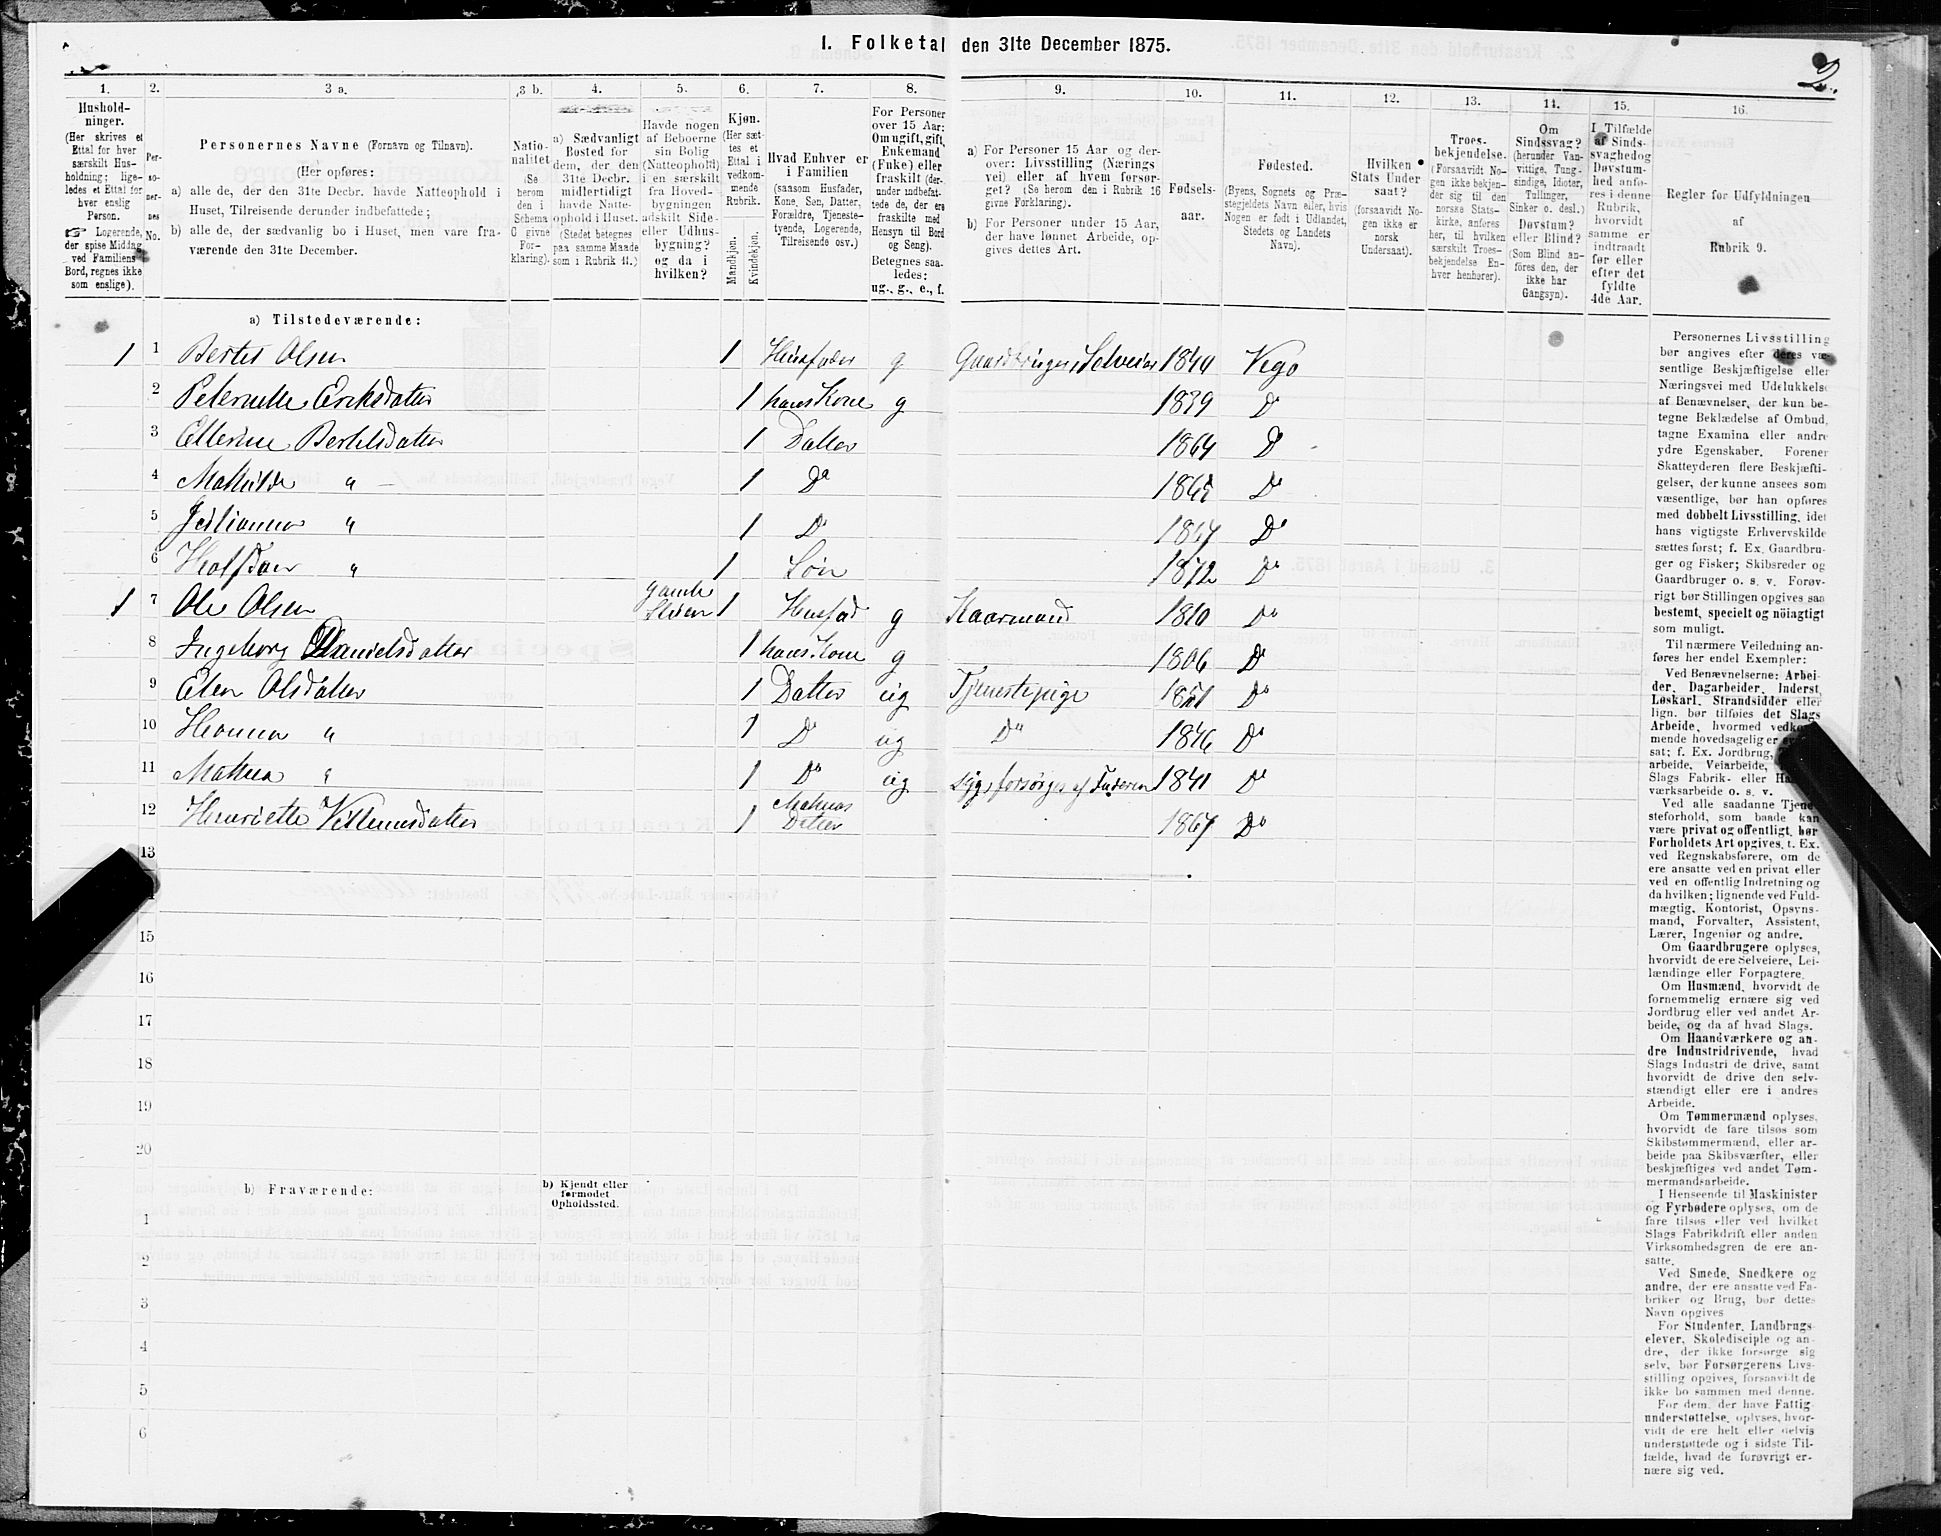 1. Folketal den 31te December 1875.
2.
1. 2. 3 a. 3 b. 4. 5. 6. 7. 8. 9. 10. 11. 12. 13. 14. 15. 16.
Hushold-
ninger.
(Her skrives et
Ettal for hver
særskilt Hus-
holdning; lige-
ledes et Ettal for
hver enslig
Person.
☞ Logerende,
der spise Middag
ved Familiens
Bord, regnes ikke
som enslige).
Per-
so-
ner-
nes
No.
Personernes Navne (Fornavn og Tilnavn).
(Her opføres:
a) alle de, der den 31te Decbr. havde Natteophold i
Huset, Tilreisende derunder indbefattede;
b) alle de, der sædvanlig bo i Huset, men vare fra-
værende den 31te December.
Natio-
nalitet
(Se
herom
den i
Schema
G givne
For-
klaring).
a) Sædvanligt
Bosted for
dem, der den
31te Decbr.
midlertidigt
havde Natte-
ophold i Huset.
(Stedet betegnes
paa samme Maade
som i Rubrik 11.)
Havde nogen
af Beboerne
sin Bolig
(Natteophold)
i en særskilt
fra Hoved-
bygningen
adskilt Side-
eller Udhus-
bygning?
og da i
hvilken?
Kjøn.
(Her sæt-
tes et
Ettal i
vedkom-
mende
Rubrik.
Mandkjøn.
Kvindekjøn.
Hvad Enhver er
i Familien
(saasom Husfader,
Kone, Søn, Datter,
Forældre, Tjeneste-
tyende, Logerende,
Tilreisende osv.)
For Personer
over 15 Aar:
Om ugift, gift,
Enkemand
(Enke) eller
fraskilt (der-
under indbefat-
tede de, der ere
fraskilte med
Hensyn til Bord
og Seng).
Betegnes saa-
ledes:
ug., g., e., f.
a) For Personer 15 Aar og der-
over: Livsstilling (Nærings
vei) eller af hvem forsør-
get? (Se herom den i Rubrik 16
givne Forklaring).
b) For Personer under 15 Aar,
der have lønnet Arbeide, op-
gives dettes Art.
Fødsels-
aar.
Fødested.
(Byens, Sognets og Præ-
stegjeldets Navn eller, hvis
Nogen er født i Udlandet,
Stedets og Landets
Navn).
Hvilken
Stats Under
saat?
(forsaavidt No-
gen ikke er
norsk
Undersaat).
Troes-
bekjendelse.
(Forsaavidt No-
gen ikke bekjen-
der sig til den
norske Stats-
kirke, anføres
her, til hvilken
særskilt Troes-
bekjendelse En-
hver henhører).
Om
Sindssvag?
(herunder Van-
vittige, Tung-
sindige, Idioter,
Tullinger,
Sinker o. desl.)
Døvstum?
eller Blind?
(Som Blind an-
føres den, der
ikke har
Gangsyn).
I Tilfælde
af Sinds-
svaghed og
Døvstum-
hed anfø-
res i denne
Rubrik,
hvorvidt
samme er
indtraadt
før eller
efter det
fyldte
4de Aar.
Regler for Udfyldningen
af
Rubrik 9.
a) Tilstedeværende:
1 1 Bertel Olsen 1 Husfader g Gaardbruger, Selveier 1840 Vegø
2 Peternelle Eriksdatter 1 hans Kone g 1839 Do
3 Ellerine Bertelsdatter 1 Datter 1864 Do
4 Mathilde " 1 Do 1865 Do
5 Julianna " 1 Do 1867 Do
6 Halfdan " 1 Søn 1872 Do
1 7 Ole Olsen gamle Stuen 1 Husfad g Kaarmand 1810 Do
8 Ingeborg Danielsdatter 1 hans Kone g 1806 Do
9 Elen Olsdatter 1 Datter ug Tjenestepige 1851 Do
10 Hanna " 1 Do ug Do 1846 Do
11 Mathea " 1 Do ug syg, forsørges af Faderen 1841 Do
12 Henriette Villumsdatter 1 Matheas Datter 1867 Do
13
15
16
17
18
19
20
b) Fraværende:
b) Kjendt eller
formodet
Opholdssted.
1
2
3
4
5
6
Personernes Livsstilling
bør angives efter deres væ-
sentlige Beskjæftigelse eller
Næringsvei med Udelukkelse
af Benævnelser, der kun be-
tegne Beklædelse af Ombud,
tagne Examina eller andre
ydre Egenskaber. Forener
Skatteyderen flere Beskjæfti-
gelser, der kunne ansees som
væsentlige, bør han opføres
med dobbelt Livsstilling, idet
hans vigtigste Erhvervskilde
sættes først; f. Ex. Gaardbru-
ger og Fisker; Skibsreder og
Gaardbruger o. s. v. Forøv-
rigt bør Stillingen opgives saa
bestemt, specielt og nøiagtigt
som muligt.
Til nærmere Veiledning an-
føres her endel Exempler:
Ved Benævnelserne: Arbei-
der, Dagarbeider, Inderst,
Løskarl, Strandsidder eller
lign. bør tilføies det Slags
Arbeide, hvormed vedkom-
mende hovedsagelig er
sat; f. Ex. Jordbrug,
arbeide, Veiarbeide,
Slags Fabrik- eller
værksarbeide o. s. v.
Ved alle saadanne Tjene-
steforhold, som baade kan
være privat og offentligt, bør
Forholdets Art opgives, t. Ex.
ved Regnskabsførere, om de
ere ansatte ved en privat eller
ved en offentlig Indretning og
da hvilken; lignende ved Fuld-
mægtig, Kontorist, Opsyns-
mand, Forvalter, Assistent,
Lærer, Ingeniør og andre.
Om Gaardbrugere oplyses,
hvorvidt de ere Selveiere, Lei-
lændinge eller Forpagtere.
Om Husmænd, hvorvidt de
fornemmelig ernære sig ved
Jordbrug eller ved andet Ar-
beide, og da af hvad Slags.
Om Haandværkere og an-
dre Industridrivende, hvad
Slags Industri de drive, samt
hvorvidt de drive den selv-
stændigt eller ere i andres
Arbeide.
Om Tømmermænd oplyses,
hvorvidt de fare tilsøs som
Skibstømmermænd, eller ar-
beide paa Skibsværfter, eller
beskjæftiges ved andet Tøm-
mermandsarbeide.
I Henseende til Maskinister
og Fyrbødere oplyses, om de
fare tilsøs eller ved hvilket
Slags Fabrikdrift eller anden
Virksomhedsgren de ere an-
satte.
Ved Smede, Snedkere og
andre, der ere ansatte ved Fa-
briker og Brug, bør dettes
Navn opgives
For Studenter, Landbrugs-
elever, Skoledisciple og an-
dre, der ikke forsørge sig
selv, bør Forsørgerens Livs-
stilling opgives, forsaavidt de
ikke bo sammen med denne.
For dem, der have Fattig-
understøttelse, oplyses, hvor-
vidt de ere helt eller delvis
understøttede og i sidste Til-
fælde, hvad de forøvrigt er-
nære sig ved.